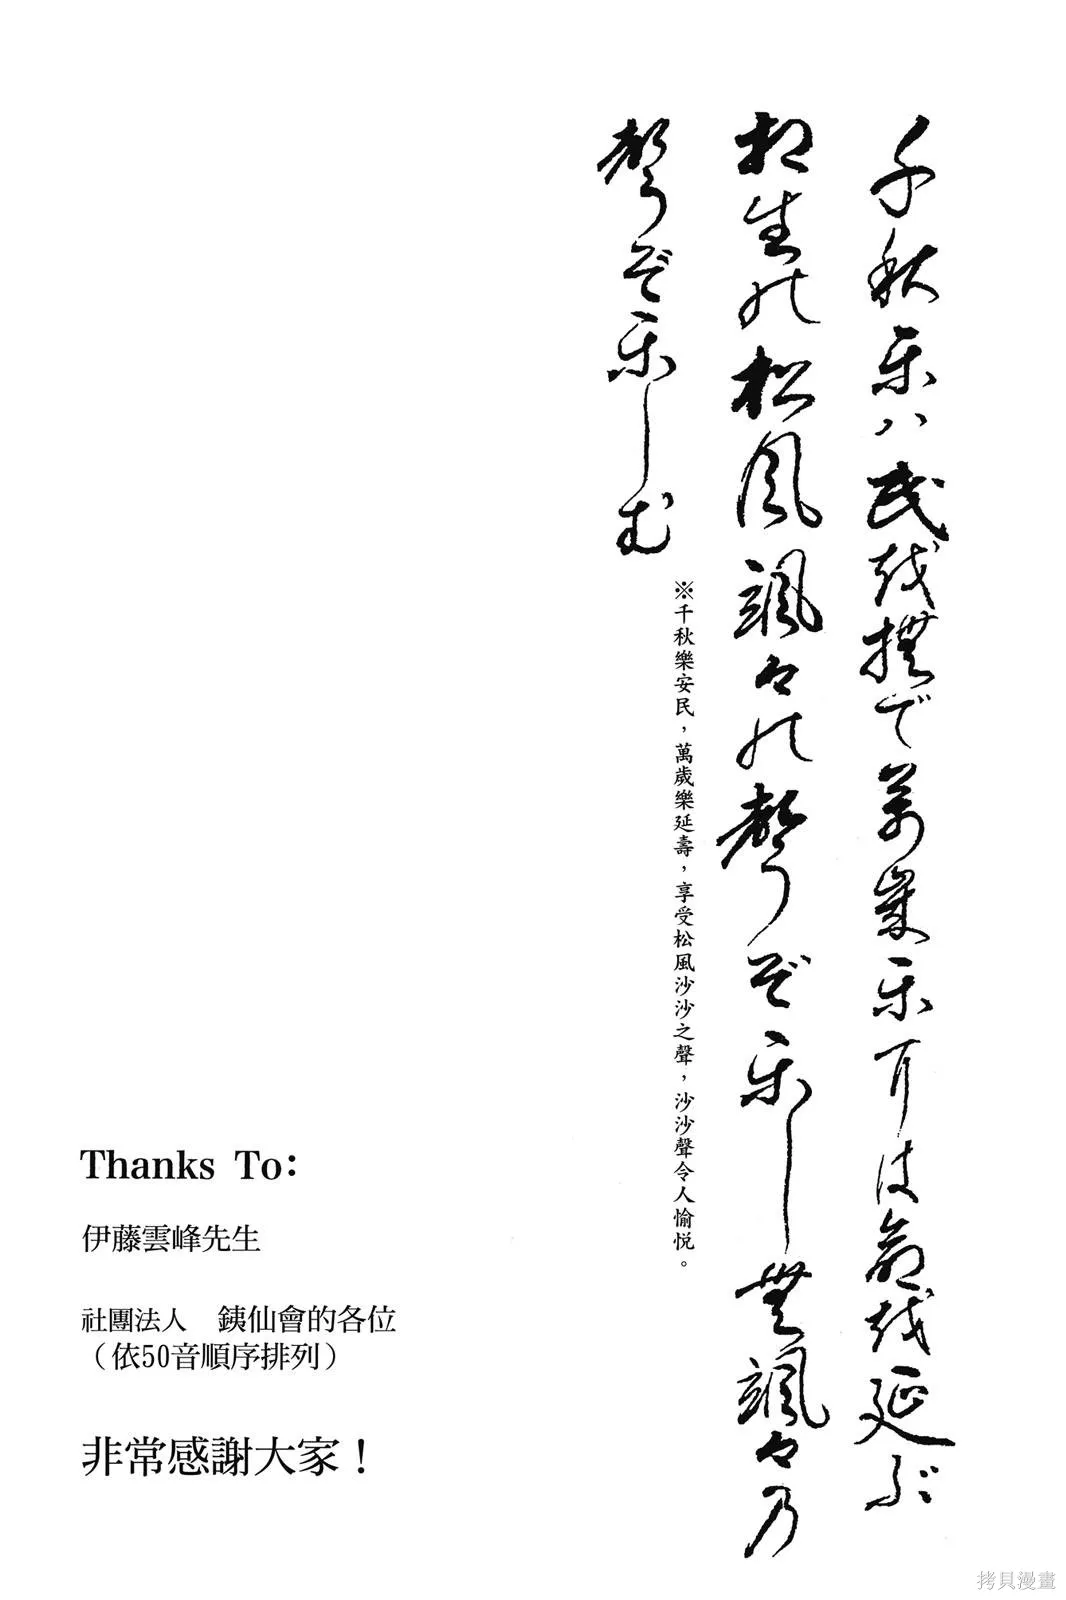 千秋楽ハ民越撫で萬歳楽耳は命越延ぶ
相生能松風颯々能聲ぞ楽しむ颯々乃
聲ぞ楽しむ
※千秋樂安民，萬歲樂延壽，享受松風沙沙之聲，沙沙聲令人愉悅。
Thanks To：
伊藤雲峰先生
社團法人　銕仙會的各位
（依50音順序排列）
非常感謝大家！
拷貝漫畫